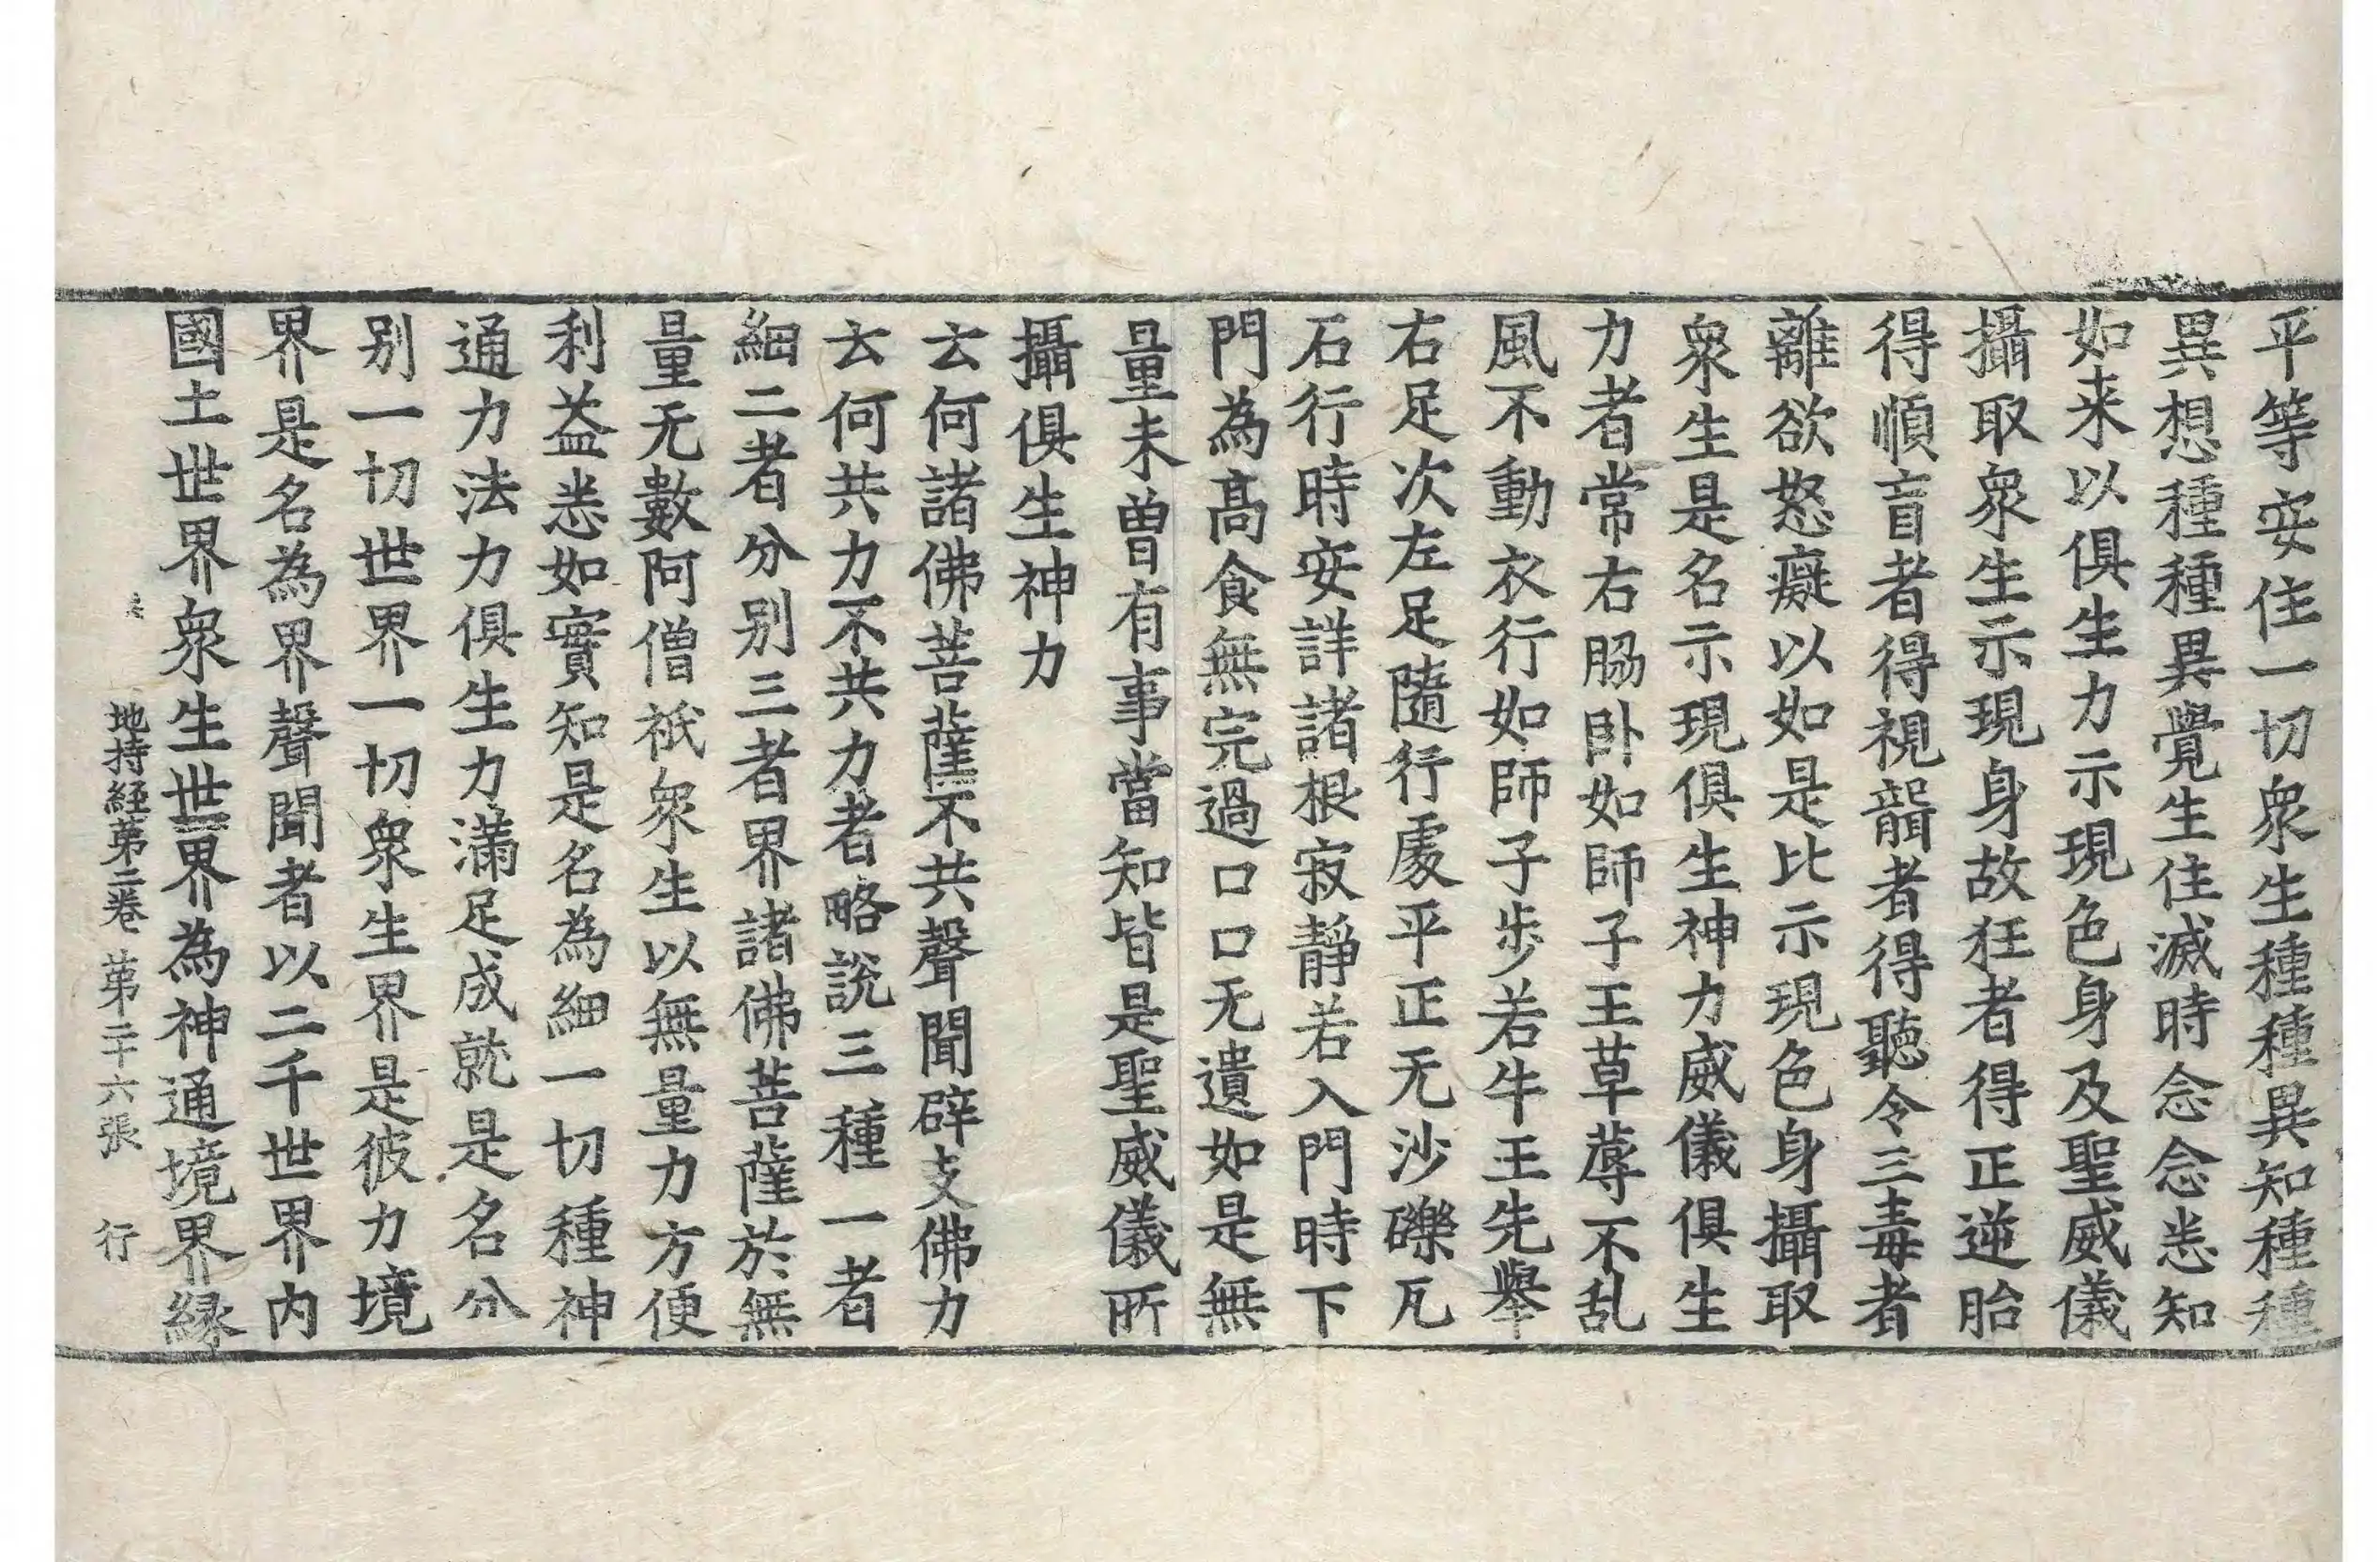 平等安住一切衆生種種異知種種
異想種種異覺生住滅時念念悉知
如来以俱生力示現色身及聖威儀
攝取衆生示現身故狂者得正逆胎
得順盲者得視聾者得聽令三毒者
離欲怒癡以如是比示現色身攝取
衆生是名示現俱生神力威儀俱生
力者常右脇卧如師子王草蓐不乱
風不動衣行如師子步若牛王先舉
右足次左足隨行處平正无沙礫瓦
石行時安詳諸根寂靜若入門時下
門為髙食無完過口口无遺如是無
量未曽有事當知皆是聖威儀所
攝俱生神力
云何諸佛菩薩不共聲聞辟支佛力
云何共力不共力者略說三種一者
細二者分别三者界諸佛菩薩於無
量无數阿僧祇衆生以無量力方便
利益悉如實知是名為細一切種神
通力法力俱生力滿足成就是名分
别一切世界一切衆生界是彼力境
界是名為界聲聞者以二千世界內
國土世界衆生世界為神通境界緣
地持経苐二卷 苐二十六張 行